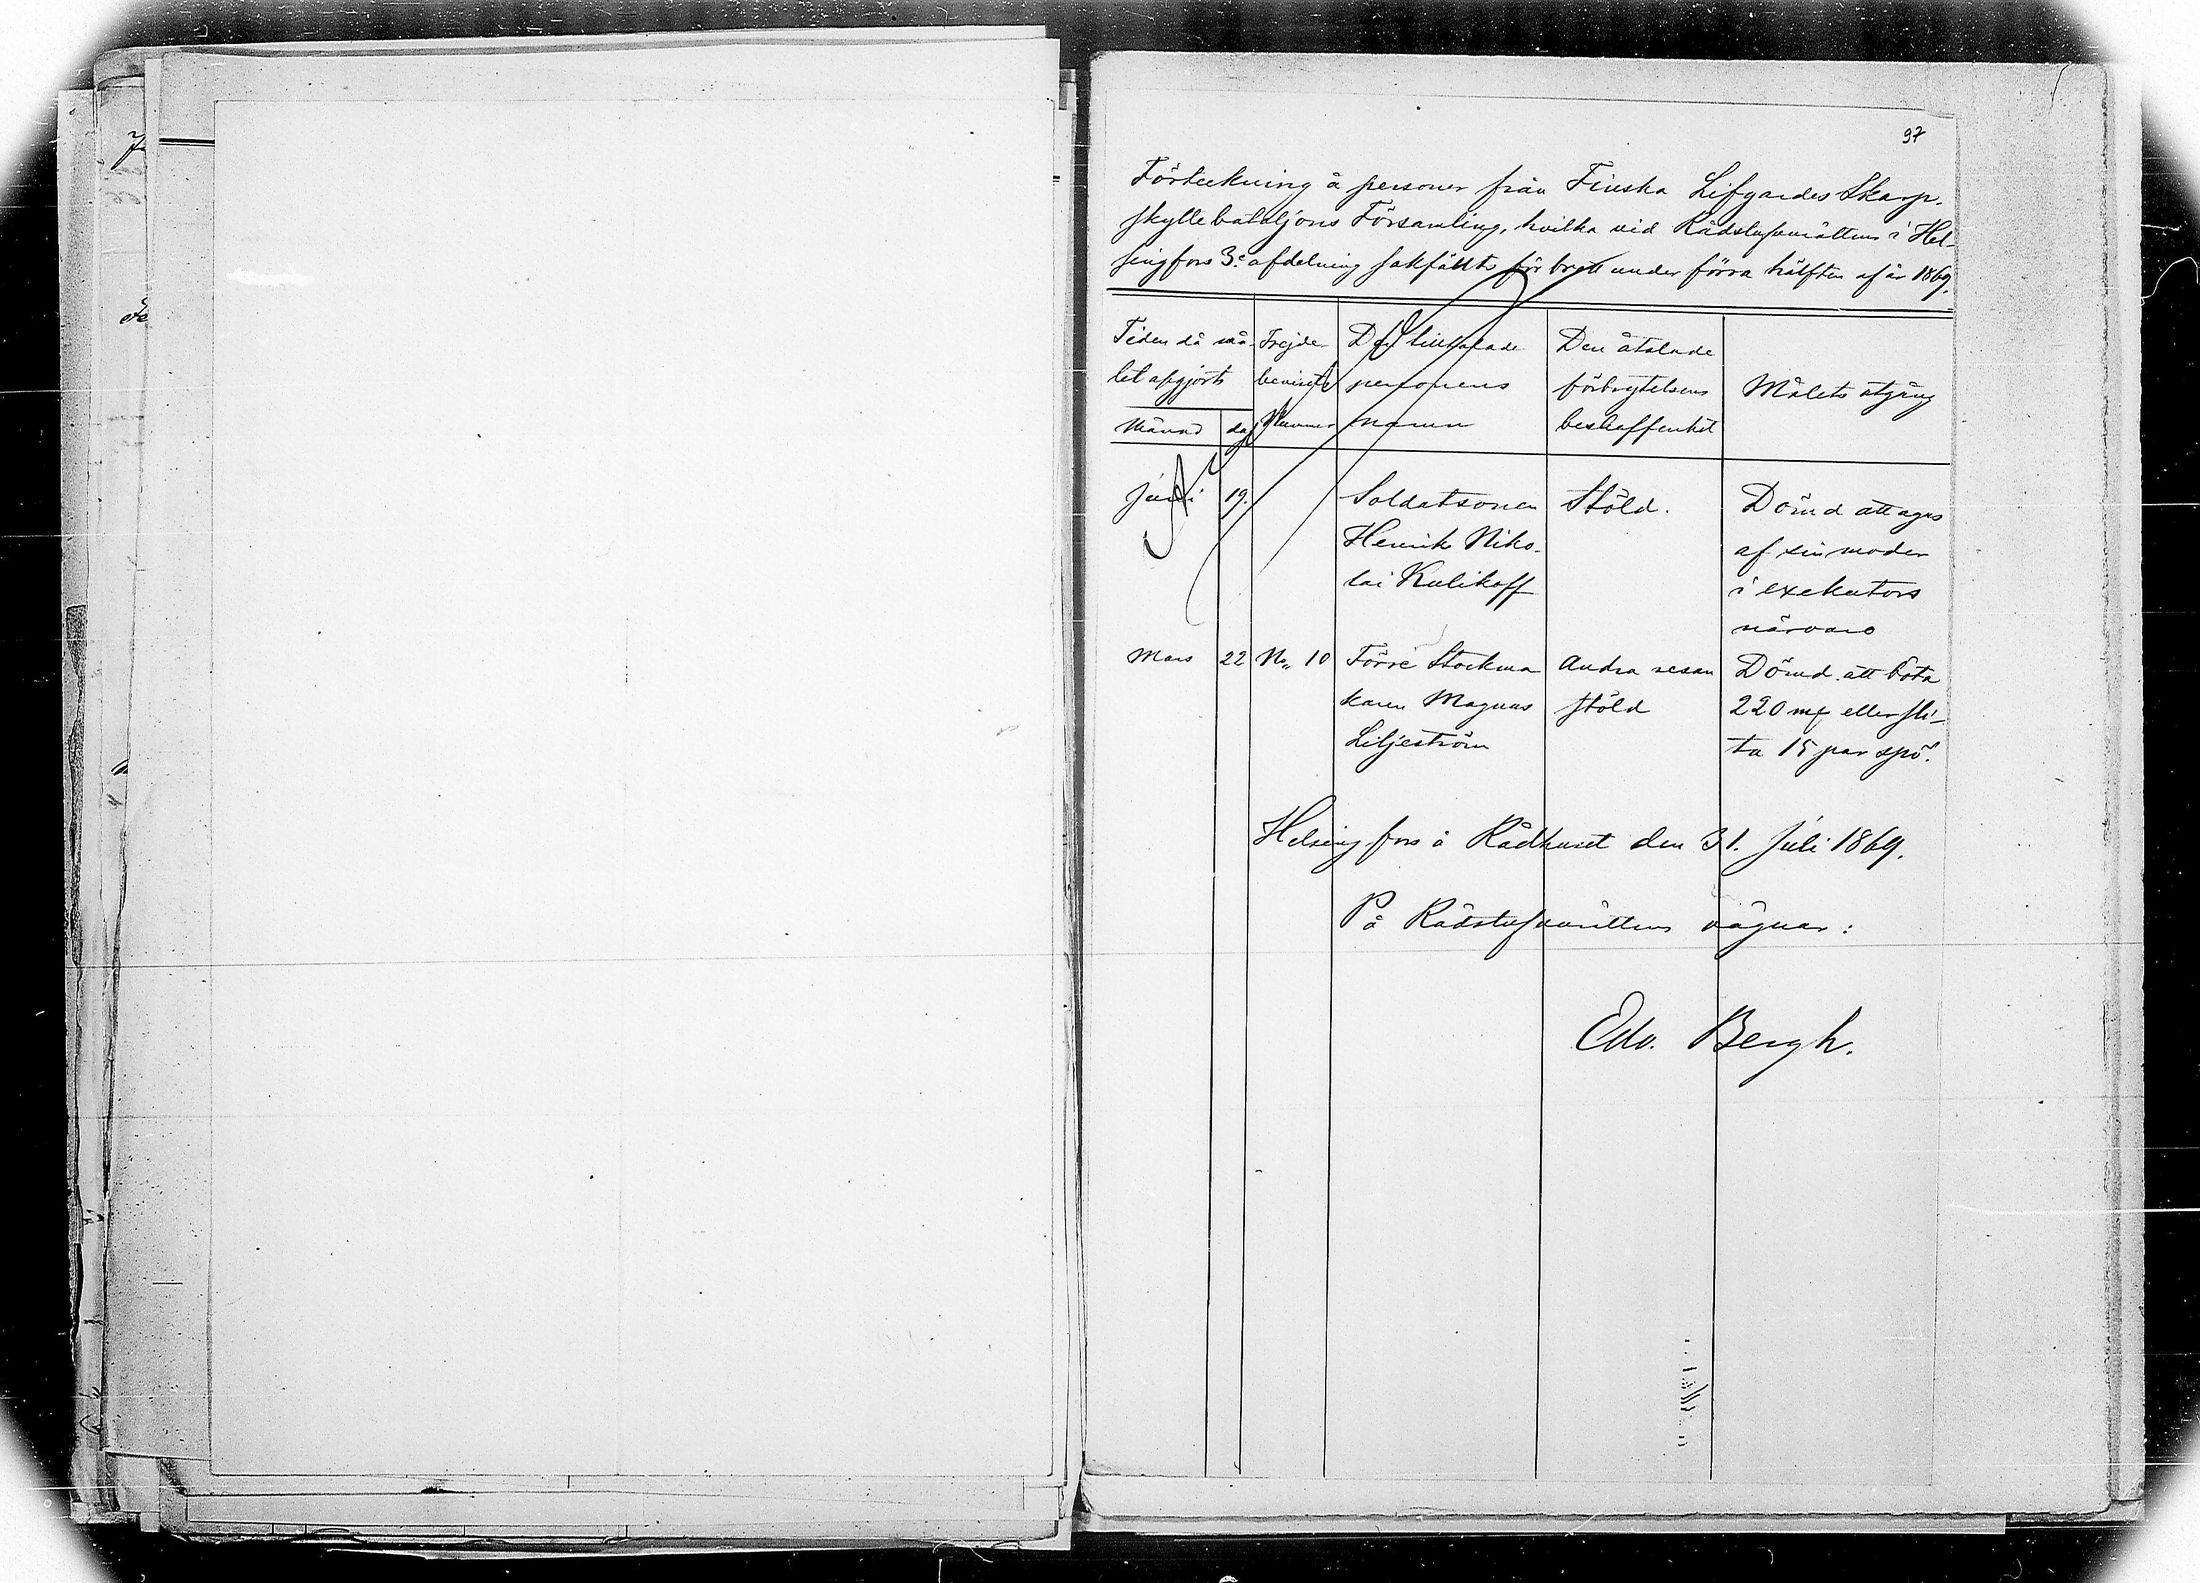 97
Förteckning å personer från Finska Lifgardes Skarp-
skyttebataljons Församling, hvilka vid Rådstufvurättens i Hel-
singfors 3e afdelning sakfällts för brott under förra hälften af år 1869.
Tiden då må-
let afgjorts
Månad
dag
Frejde-
bevisets
Nummer
Den tilltalade
personens
namn
Den åtalade
förbrytelsens
beskaffenhet
Målets utgång
Juni 19. Soldatsonen Stöld. Dömd att agas
Henrik Niko- af sin moder
lai Kulikoff i exekutors
närvaro
Mars 22 No 10 Förre Stockma Andra resan Dömd att böta
karen Magnus stöld 220 mk eller sli-
Liljeström ta 15 par spö.
Helsingfors å Rådhuset den 31. Juli 1869.
På Rådstufvurättens vägnar:
Edv. Bergh.